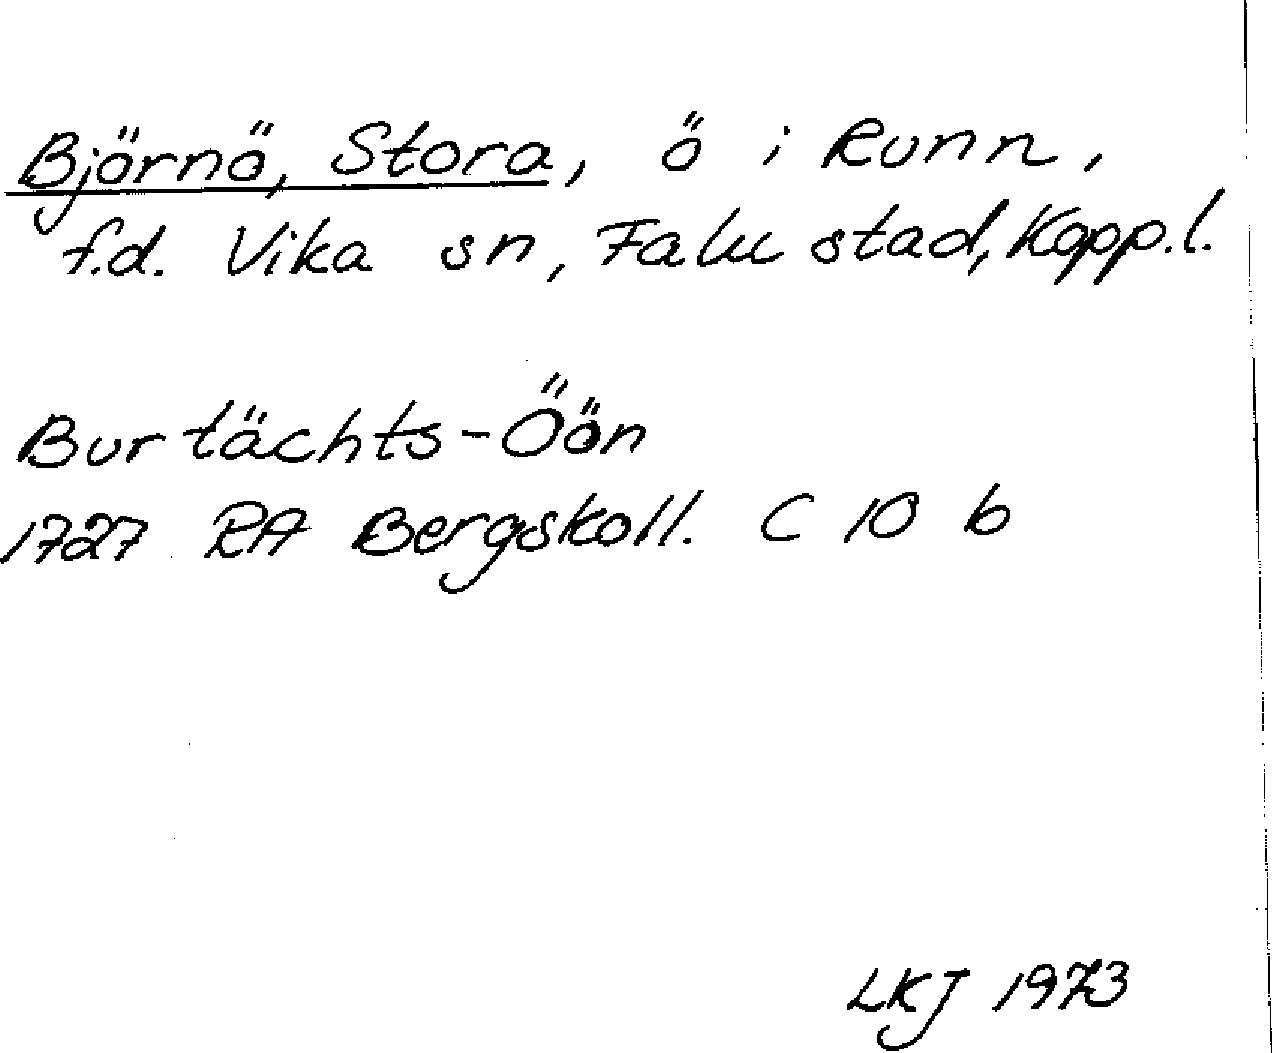 Björnö, Stora, ö i Runn,
f.d. Vika sn, Falu stad, Kopp.l.
Burtächts-Öön
1727 RA Bergskoll. C 10 b
LKJ 1973